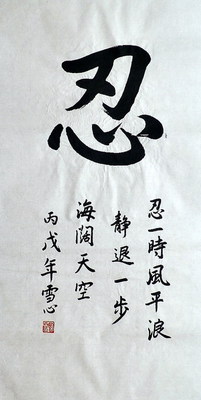 忍
忍一時風平浪
靜退一步
海阔天空
丙戌年雪心